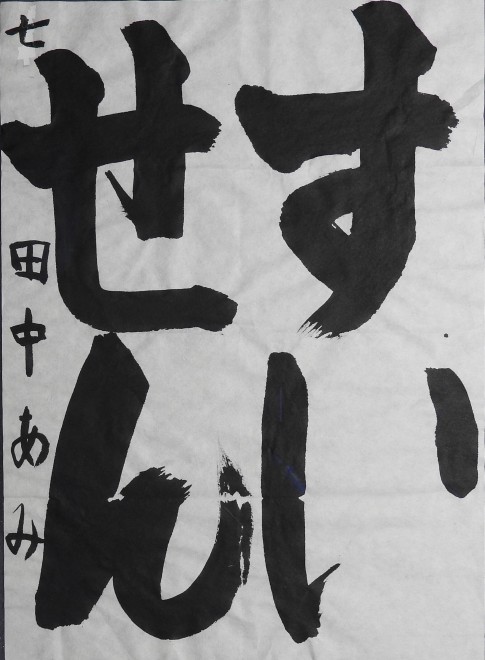 すい
せん
七 田中あみ